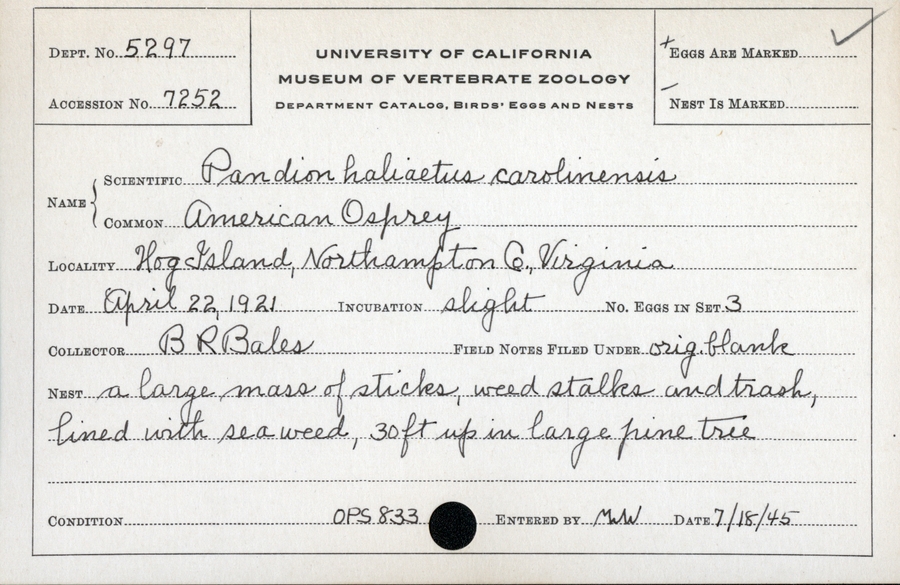 DEPT. No. 5297
ACCESSION No. 7252
UNIVERSITY OF CALIFORNIA
MUSEUM OF VERTEBRATE ZOOLOGY
DEPARTMENT CATALOG, BIRDS' EGGS AND NESTS
+ EGGS ARE MARKED ✓
- NEST IS MARKED
NAME { SCIENTIFIC Pandion haliaetus carolinensis
COMMON American Osprey
LOCALITY Hog Island, Northampton Co., Virginia
DATE April 22, 1921 INCUBATION slight No. EGGS IN SET 3
COLLECTOR B R Bales FIELD NOTES FILED UNDER orig. blank
NEST a large mass of sticks, weed stalks and trash,
lined with sea weed, 30 ft up in large pine tree
CONDITION OPS 833 ENTERED BY DATE 7/18/45